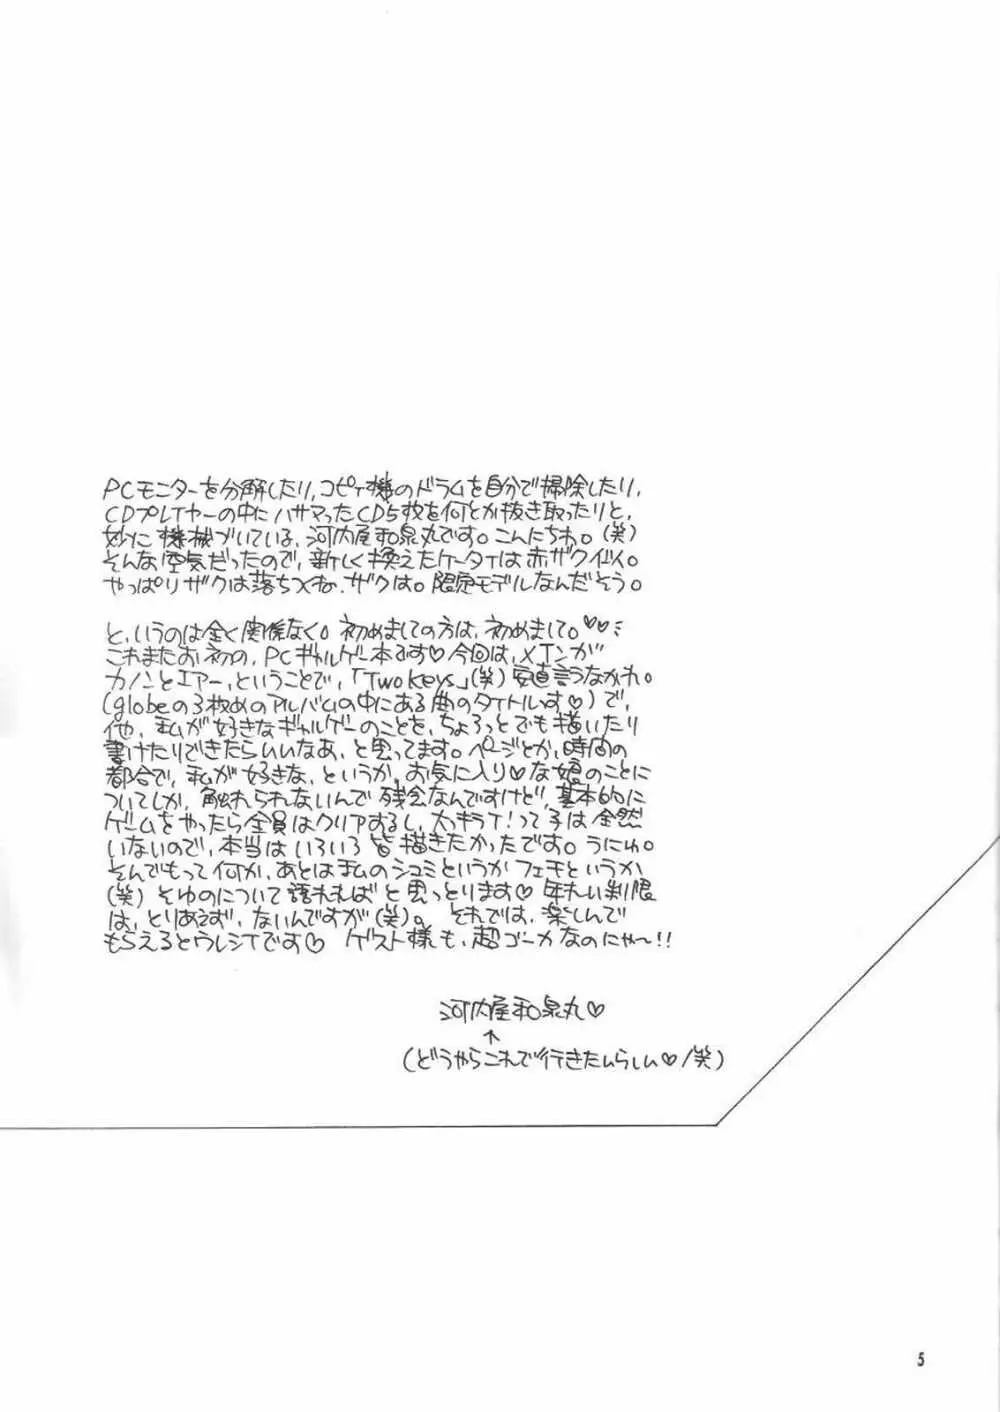 PCモニターを分解したり、コピィ機のドラムを自分で掃除したり、
CDプレイヤーの中にハサマったCD5枚を何とか抜き取ったりと、
妙に機械づいている、河内屋和泉丸です。こんにちわ。(笑)
そんな空気だったので、新しく換えたケータイは赤ザク仕様。
やっぱりザクは落ちつくね、ザクは。限定モデルなんだそう。
と、いうのは全く関係なく。初めましての方は、初めまして。♡♡
これまたお初の、PCギャルゲー本です♡今回は、メインが
カノンとエアー、ということで、「Two Keys」(笑)安直言うなかれ。
(globeの3枚めのアルバムの中にある曲のタイトルっす♡)で、
他、私が好きなギャルゲーのことを、ちょろっとでも描いたり
書けたりできたらいいなあ、と思ってます。ページとか、時間の
都合で、私が好きな、というか、お気に入り♡な娘のことに
ついてしか、触れられないんで残念なんですけど、基本的に
ゲームをやったら全員はクリアするし、大キライ!って子は全然
いないので、本当はいろいろ皆描きたかったです。うにゅ。
そんでもって何か、あとは私のシュミというかフェチというか
(笑)そゆのについて語れればと思っとります♡年れい制限
は、とりあえず、ないんですが(笑)。それでは、楽しんで
もらえるとウレシイです♡ ゲスト様も、超ゴーカなのにゃ〜!!
河内屋和泉丸♡
↑
(どうやらこれで行きたいらしい♡/笑)
5